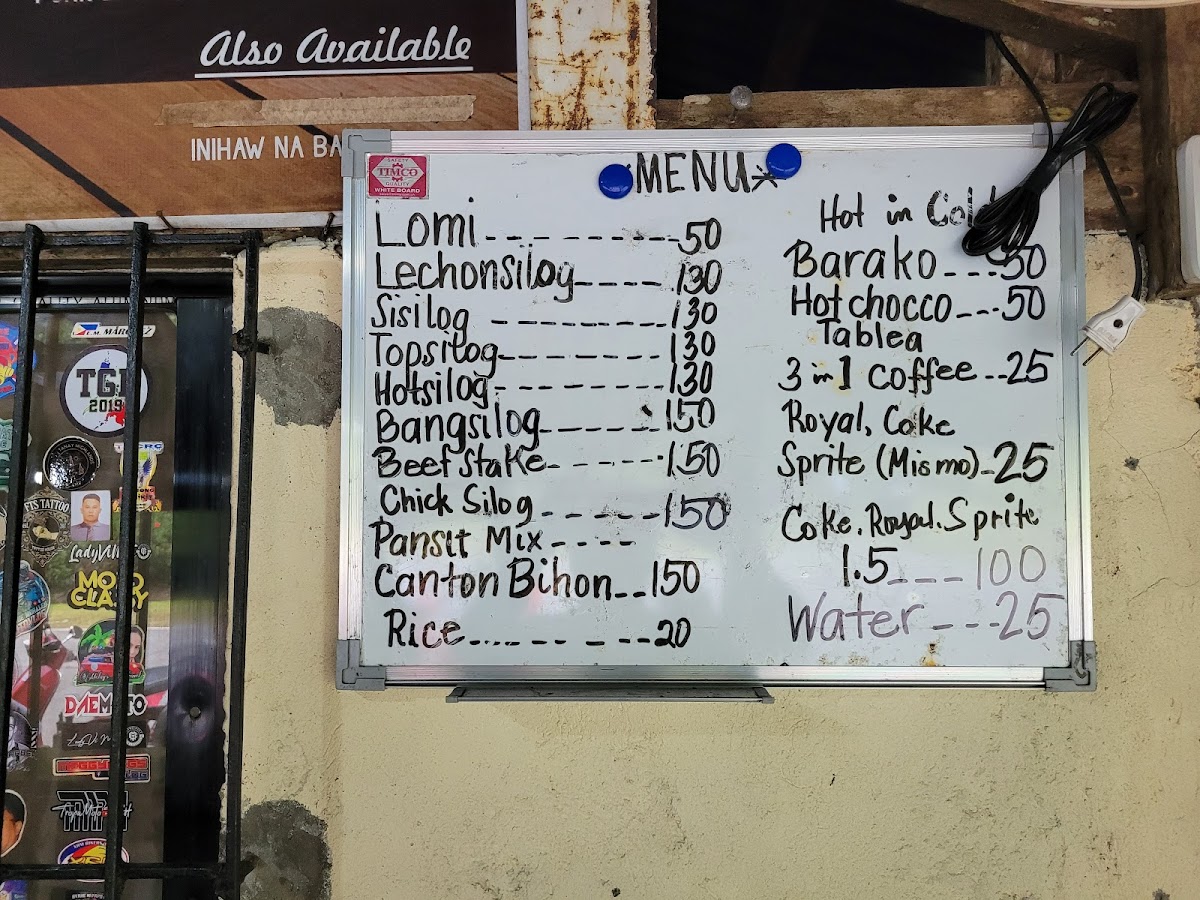 Also Available
INIHAW NA BA
SAFETY
TIMCO
QUALITY
WHITE BOARD
MENU
Lomi ---------- 50
Lechonsilog ---- 130
Sisilog -------- 130
Topsilog -------- 130
Hotsilog -------- 130
Bangsilog ------- 150
Beef Stake ------- 150
Chick Silog ------ 150
Pansit Mix -----
Canton Bihon -- 150
Rice -------- 20
Hot in Cold
Barako --- 50
Hot chocco --- 50
Tablea
3 in 1 coffee -- 25
Royal, Coke
Sprite (Mismo) - 25
Coke. Royal. Sprite
1.5 --- 100
Water --- 25
TGR
2019
FTS TATTOO
MOTO
CLASSY
DAEMOTO